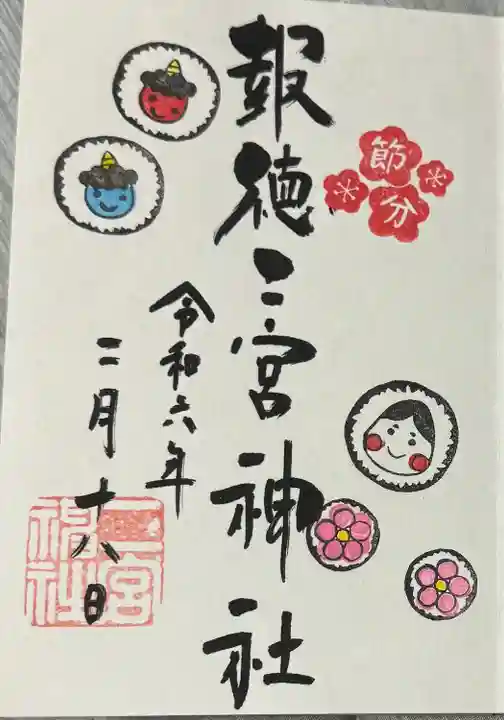 節分
報徳二宮神社
令和六年
二月十八日
二宮神社